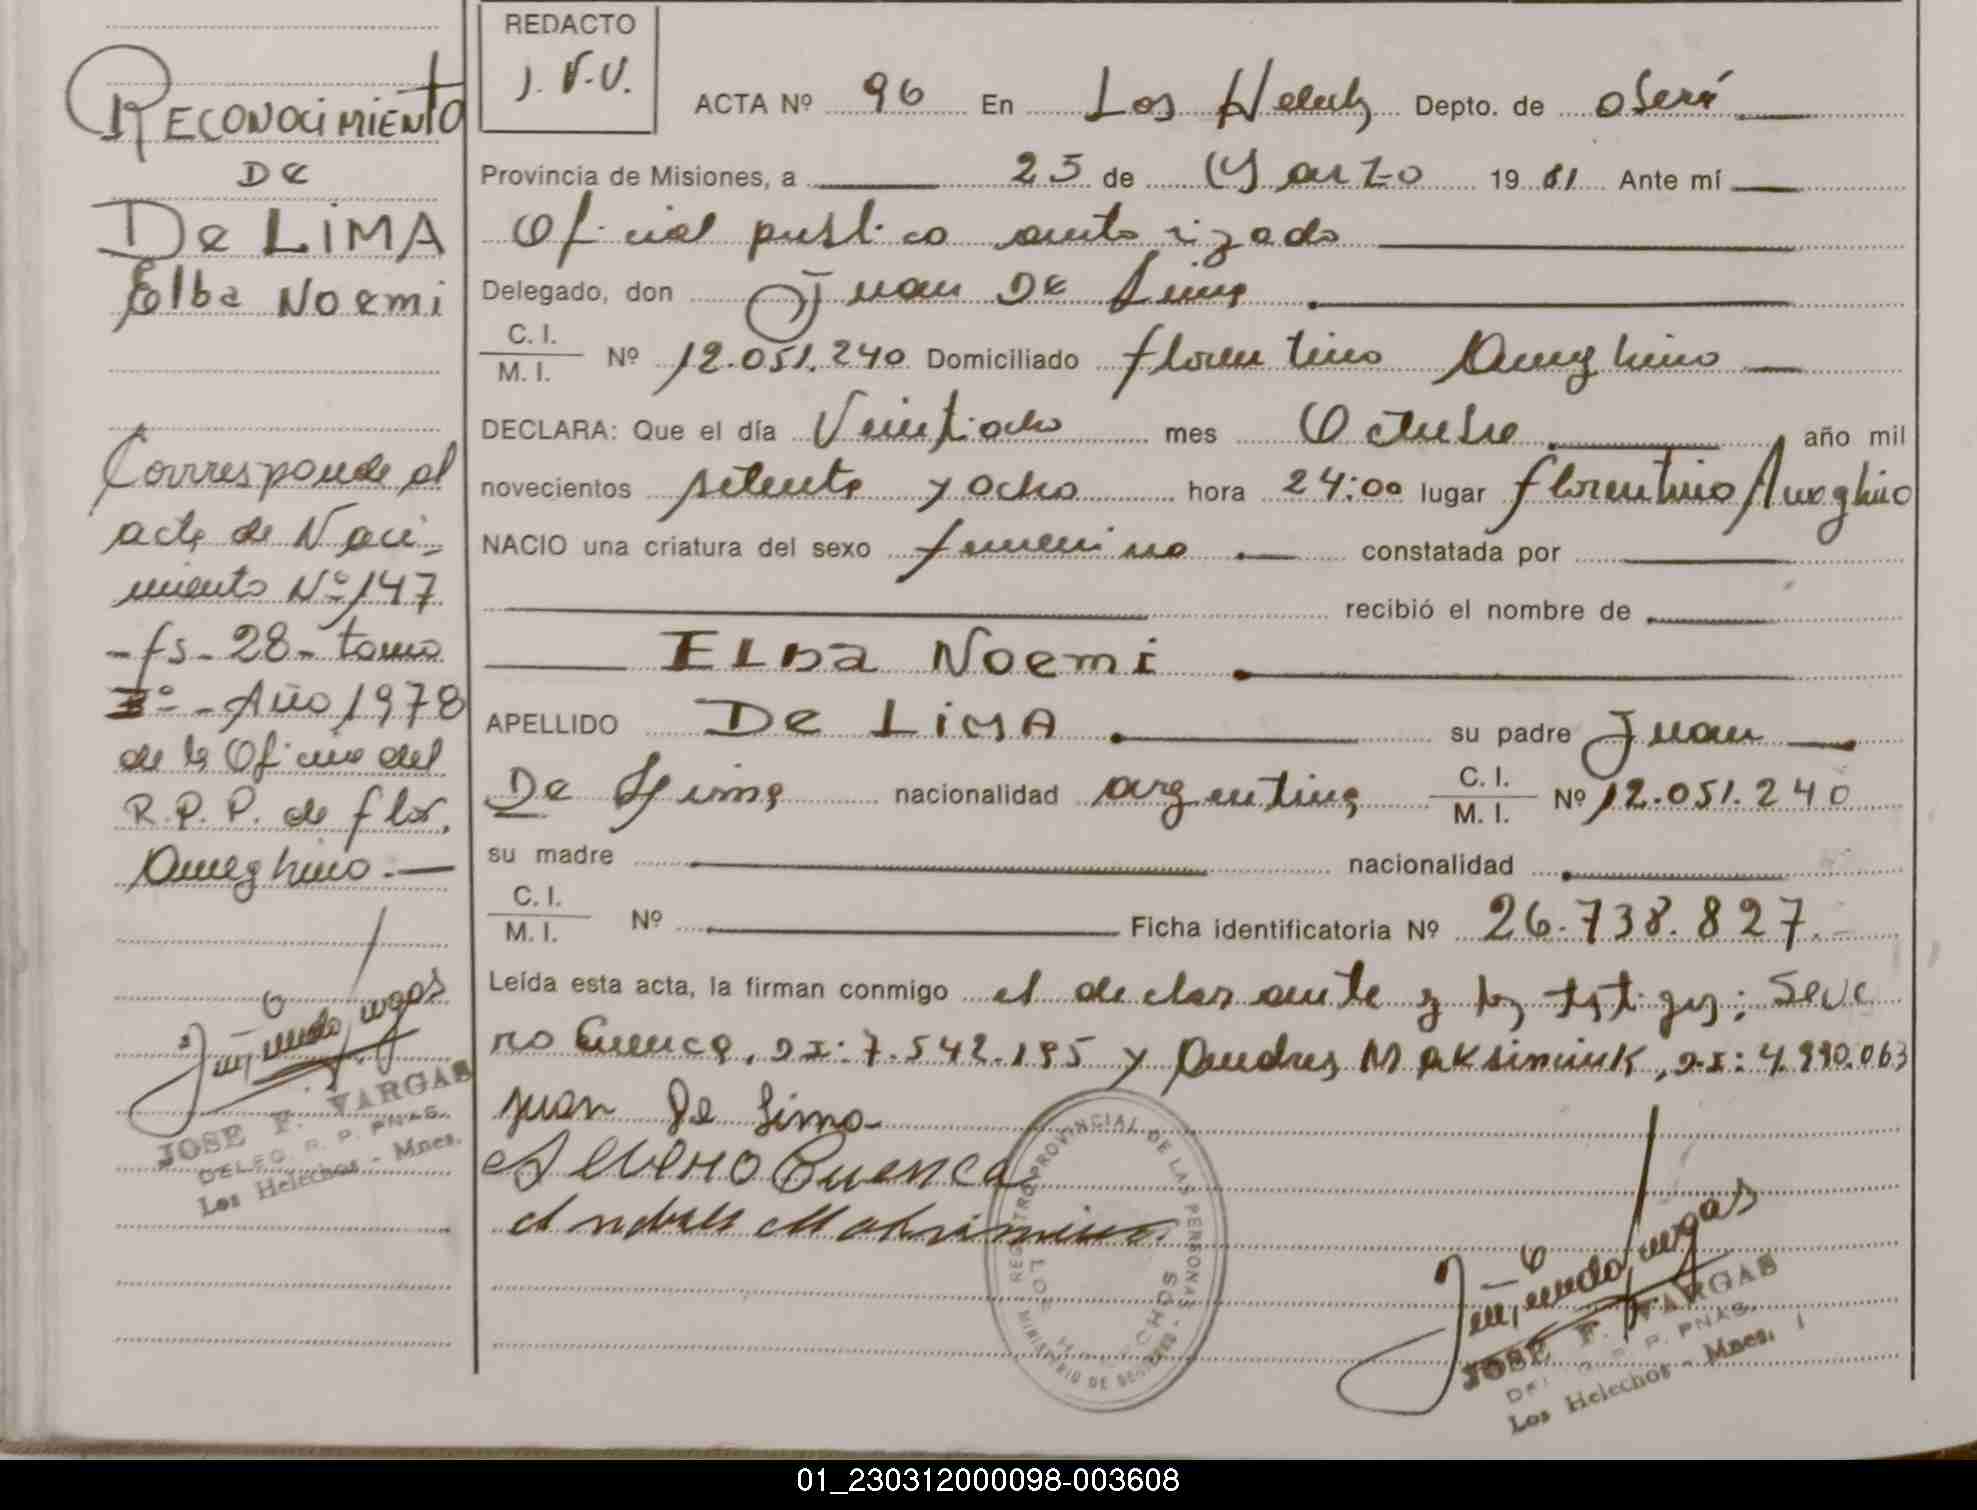 RECONOCIMIENTO
DE
De LIMA
Elba Noemi
Corresponde al
acta de Naci-
miento Nº 147
- fs - 28 - tomo
Iº - Año 1978
de la Oficina del
R.P.P. de flor.
Ameghino. —
JOSE F. VARGAS
DELEG. R. P. PNAS.
Los Helechos - Mnes.
REDACTO
J. F. V.
ACTA Nº 96 En Los Helech Depto. de Oberá
Provincia de Misiones, a 25 de Marzo 19 81 Ante mí
Oficial publico autorizado
Delegado, don Juan De Lima
C. I.
M. I. Nº 12.051.240 Domiciliado florentino Ameghino
DECLARA: Que el día Veintiocho mes Octubre año mil
novecientos setenta y ocho hora 24:00 lugar florentino Ameghino
NACIO una criatura del sexo femenino constatada por
recibió el nombre de
ELba Noemi
APELLIDO De LiMA su padre Juan
De Lima nacionalidad argentina C. I. M. I. Nº 12.051.240
su madre nacionalidad
C. I.
M. I. Nº Ficha identificatoria Nº 26.738.827.
Leída esta acta, la firman conmigo el declarante y los testigos; Seve
ro Cuenca, D.I: 7.542.195 y Andres Maksimiuk, D.I: 4.990.063
Juan De Lima
Severo Cuenca
REGISTRO PROVINCIAL DE LAS PERSONAS
LOS HELECHOS
JOSE F. VARGAS
DEL. R. P. PNAS.
Los Helechos - Mnes.
01_230312000098-003608